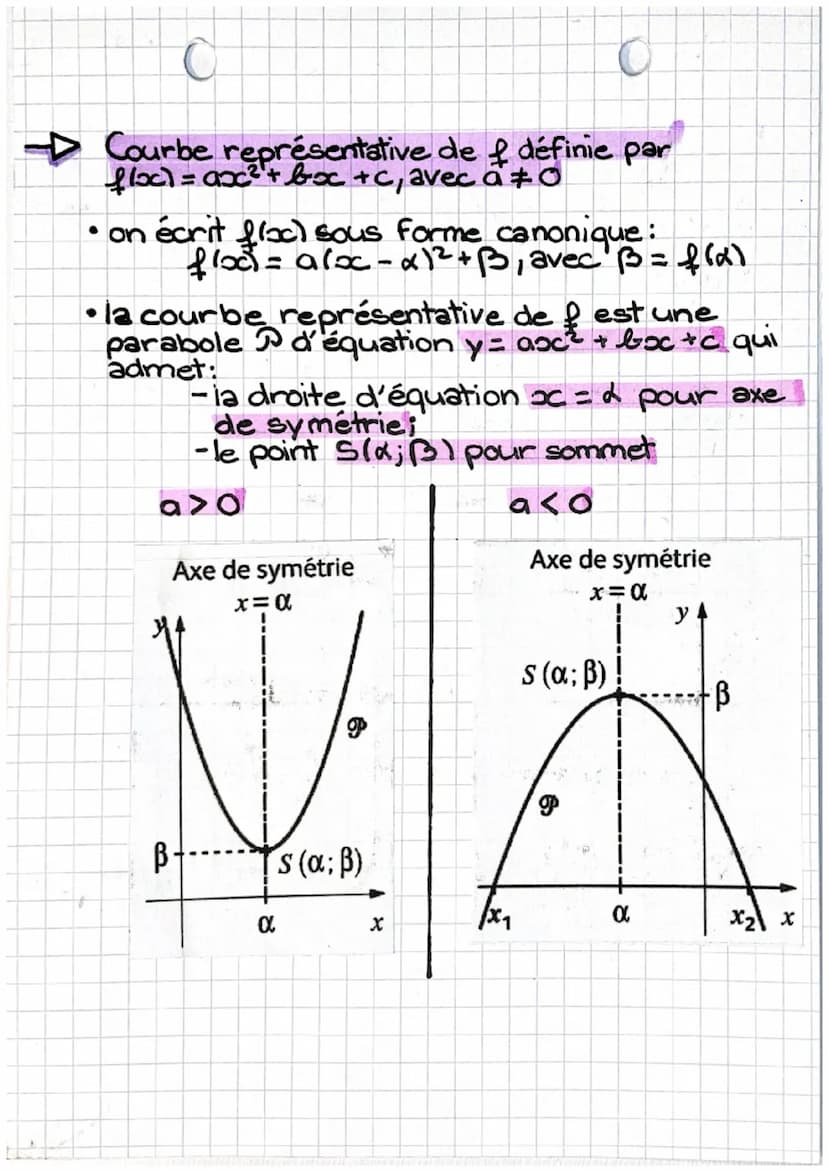 → Courbe représentative de f définie par
f(x) = ax² + bx + c, avec a ≠ 0
• on écrit f(x) sous forme canonique :
f(x) = a(x - α)² + β, avec β = f(α)
• la courbe représentative de f est une
parabole 𝒫 d'équation y = ax² + bx + c qui
admet :
- la droite d'équation x = α pour axe
de symétrie ;
- le point S(α ; β) pour sommet
a > 0
a < 0
Axe de symétrie
x = α
y
𝒫
β
S (α ; β)
α
x
Axe de symétrie
x = α
y
S (α ; β)
β
𝒫
x₁
α
x₂
x